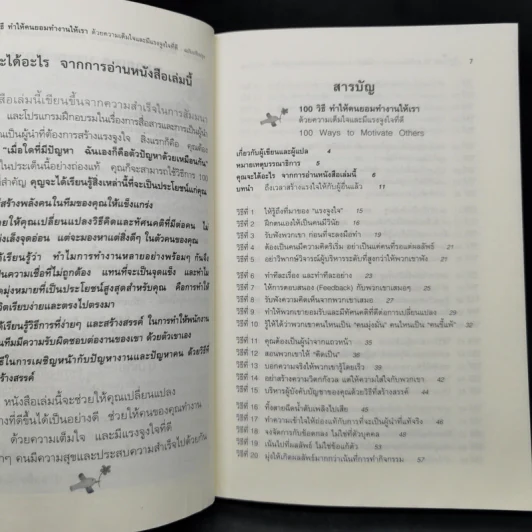 วิธี ทำให้คนยอมทำงานให้เรา ด้วยความเต็มใจและมีแรงจูงใจที่ดี
จะได้อะไร จากการอ่านหนังสือเล่มนี้
สือเล่มนี้เขียนขึ้นจากความสำเร็จในการสัมมนา
และโปรแกรมฝึกอบรมในเรื่องการสื่อสารและการเป็นผู้นำ
เป็นผู้นำที่ต้องการสร้างแรงจูงใจ สิ่งแรกก็คือ คุณต้อง
"เมื่อใดที่มีปัญหา ฉันเองก็คือตัวปัญหาด้วยเหมือนกัน"
ในประเด็นนี้อย่างถ่องแท้ คุณก็จะสามารถใช้วิธีการ 100
สำคัญ คุณจะได้เรียนรู้สิ่งเหล่านี้ที่จะเป็นประโยชน์แก่คุณ
สร้างพลังคนในทีมของคุณให้แข็งแกร่ง
ยให้คุณเปลี่ยนแปลงวิธีคิดและทัศนคติที่มีต่อคน ไม่
งเล็งจุดอ่อน แต่จะมองหาแต่สิ่งดีๆ ในตัวคนของคุณ
ได้เรียนรู้ว่า ทำไมการทำงานหลายอย่างพร้อมๆ กันจึง
ป็นความเชื่อที่ไม่ถูกต้อง แทนที่จะเป็นจุดแข็ง และทำไม
ดมุ่งหมายที่เป็นประโยชน์สูงสุดสำหรับคุณ คือการทำให้
วิตเรียบง่ายและตรงไปตรงมา
ด้เรียนรู้วิธีการที่ง่ายๆ และสร้างสรรค์ ในการทำให้พนักงาน
นทีมมีความรับผิดชอบต่องานของเขา ด้วยตัวเขาเอง
ธีในการเผชิญหน้ากับปัญหางานและปัญหาคน ด้วยวิธีที่
ร้างสรรค์
หนังสือเล่มนี้จะช่วยให้คุณเปลี่ยนแปลง
างที่ดีขึ้นได้เป็นอย่างดี ช่วยให้คนของคุณทำงาน
ด้วยความเต็มใจ และมีแรงจูงใจที่ดี
าๆ คนมีความสุขและประสบความสำเร็จไปด้วยกัน
7
สารบัญ
100 วิธี ทำให้คนยอมทำงานให้เรา
ด้วยความเต็มใจและมีแรงจูงใจที่ดี
100 Ways to Motivate Others
เกี่ยวกับผู้เขียนและผู้แปล 4
หมายเหตุบรรณาธิการ 5
คุณจะได้อะไร จากการอ่านหนังสือเล่มนี้ 6
บทนำ ถึงเวลาสร้างแรงใจให้กับผู้อื่นแล้ว 11
วิธีที่ 1 ให้รู้ถึงที่มาของ "แรงจูงใจ" 15
วิธีที่ 2 ฝึกตนเองให้เป็นคนมีวินัย 16
วิธีที่ 3 รับฟังพวกเขา ก่อนที่จะลงมือทำ 19
วิธีที่ 4 ต้องเป็นคนมีความคิดริเริ่ม อย่าเป็นแค่คนที่รอแต่ผลลัพธ์ 20
วิธีที่ 5 อย่าวิพากษ์วิจารณ์ผู้บริหารระดับที่สูงกว่าให้พวกเขาฟัง 22
วิธีที่ 6 ทำทีละเรื่อง และทำทีละอย่าง 23
วิธีที่ 7 ให้การตอบสนอง (Feedback) กับพวกเขาเสมอๆ 27
วิธีที่ 8 รับฟังความคิดเห็นจากพวกเขาเสมอ 29
วิธีที่ 9 ทำให้พวกเขายอมรับและมีทัศนคติที่ดีต่อการเปลี่ยนแปลง 29
วิธีที่ 10 รู้ให้ได้ว่าพวกเขาคนไหนเป็น "คนมุ่งมั่น" คนไหนเป็น "คนขี้แพ้" 32
วิธีที่ 11 คุณต้องเป็นผู้นำจากแถวหน้า 33
วิธีที่ 12 สอนพวกเขาให้ "คิดเป็น" 34
วิธีที่ 13 บอกความจริงให้พวกเขารู้โดยเร็ว 38
วิธีที่ 14 อย่าสร้างความวิตกกังวล แต่ให้ความใส่ใจกับพวกเขา 40
วิธีที่ 15 บริหารผู้บังคับบัญชาของคุณด้วยวิธีที่สร้างสรรค์ 44
วิธีที่ 16 ทิ้งสายฉีดน้ำดับเพลิงไปเสีย 45
วิธีที่ 17 ทำความเข้าใจให้ถ่องแท้กับภาวะที่จะเป็นผู้นำที่แท้จริง 48
วิธีที่ 18 จงจัดการกับข้อตกลง ไม่ใช่ที่ตัวบุคคล 49
วิธีที่ 19 เน้นไปที่ผลลัพธ์ ไม่ใช่ข้อแก้ตัว 53
วิธีที่ 20 มุ่งให้เกิดผลลัพธ์มากกว่าเน้นที่การทำกิจกรรม 57